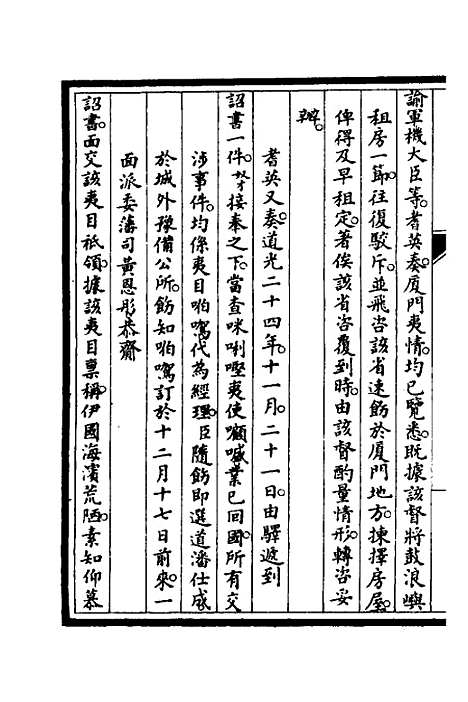 諭軍機大臣等。耆英奏。廈門夷情。均已覽悉。既據該督將鼓浪嶼
租房一節。往復駁斥。並飛咨該省速飭於廈門地方。揀擇房屋。
俾得及早租定。著俟該省咨覆到時。由該督酌量情形。轉咨妥
辦。
耆英又奏。道光二十四年。十一月。二十一日。由驛遞到
詔書一件。努接奉之下。當查咪唎㗕夷使顧嘁業已回國。所有交
涉事件。均係夷目啪嘪代為經理。臣隨飭即選道潘仕成
於城外豫備公所。飭知啪嘪訂於十二月十七日前來。一
面派委藩司黃恩彤恭齎
詔書。面交該夷目祗領。據該夷目稟稱。伊國海濱荒陋。素知仰慕